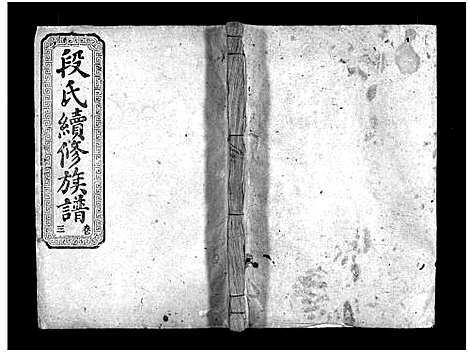 段氏續修族譜
卷三